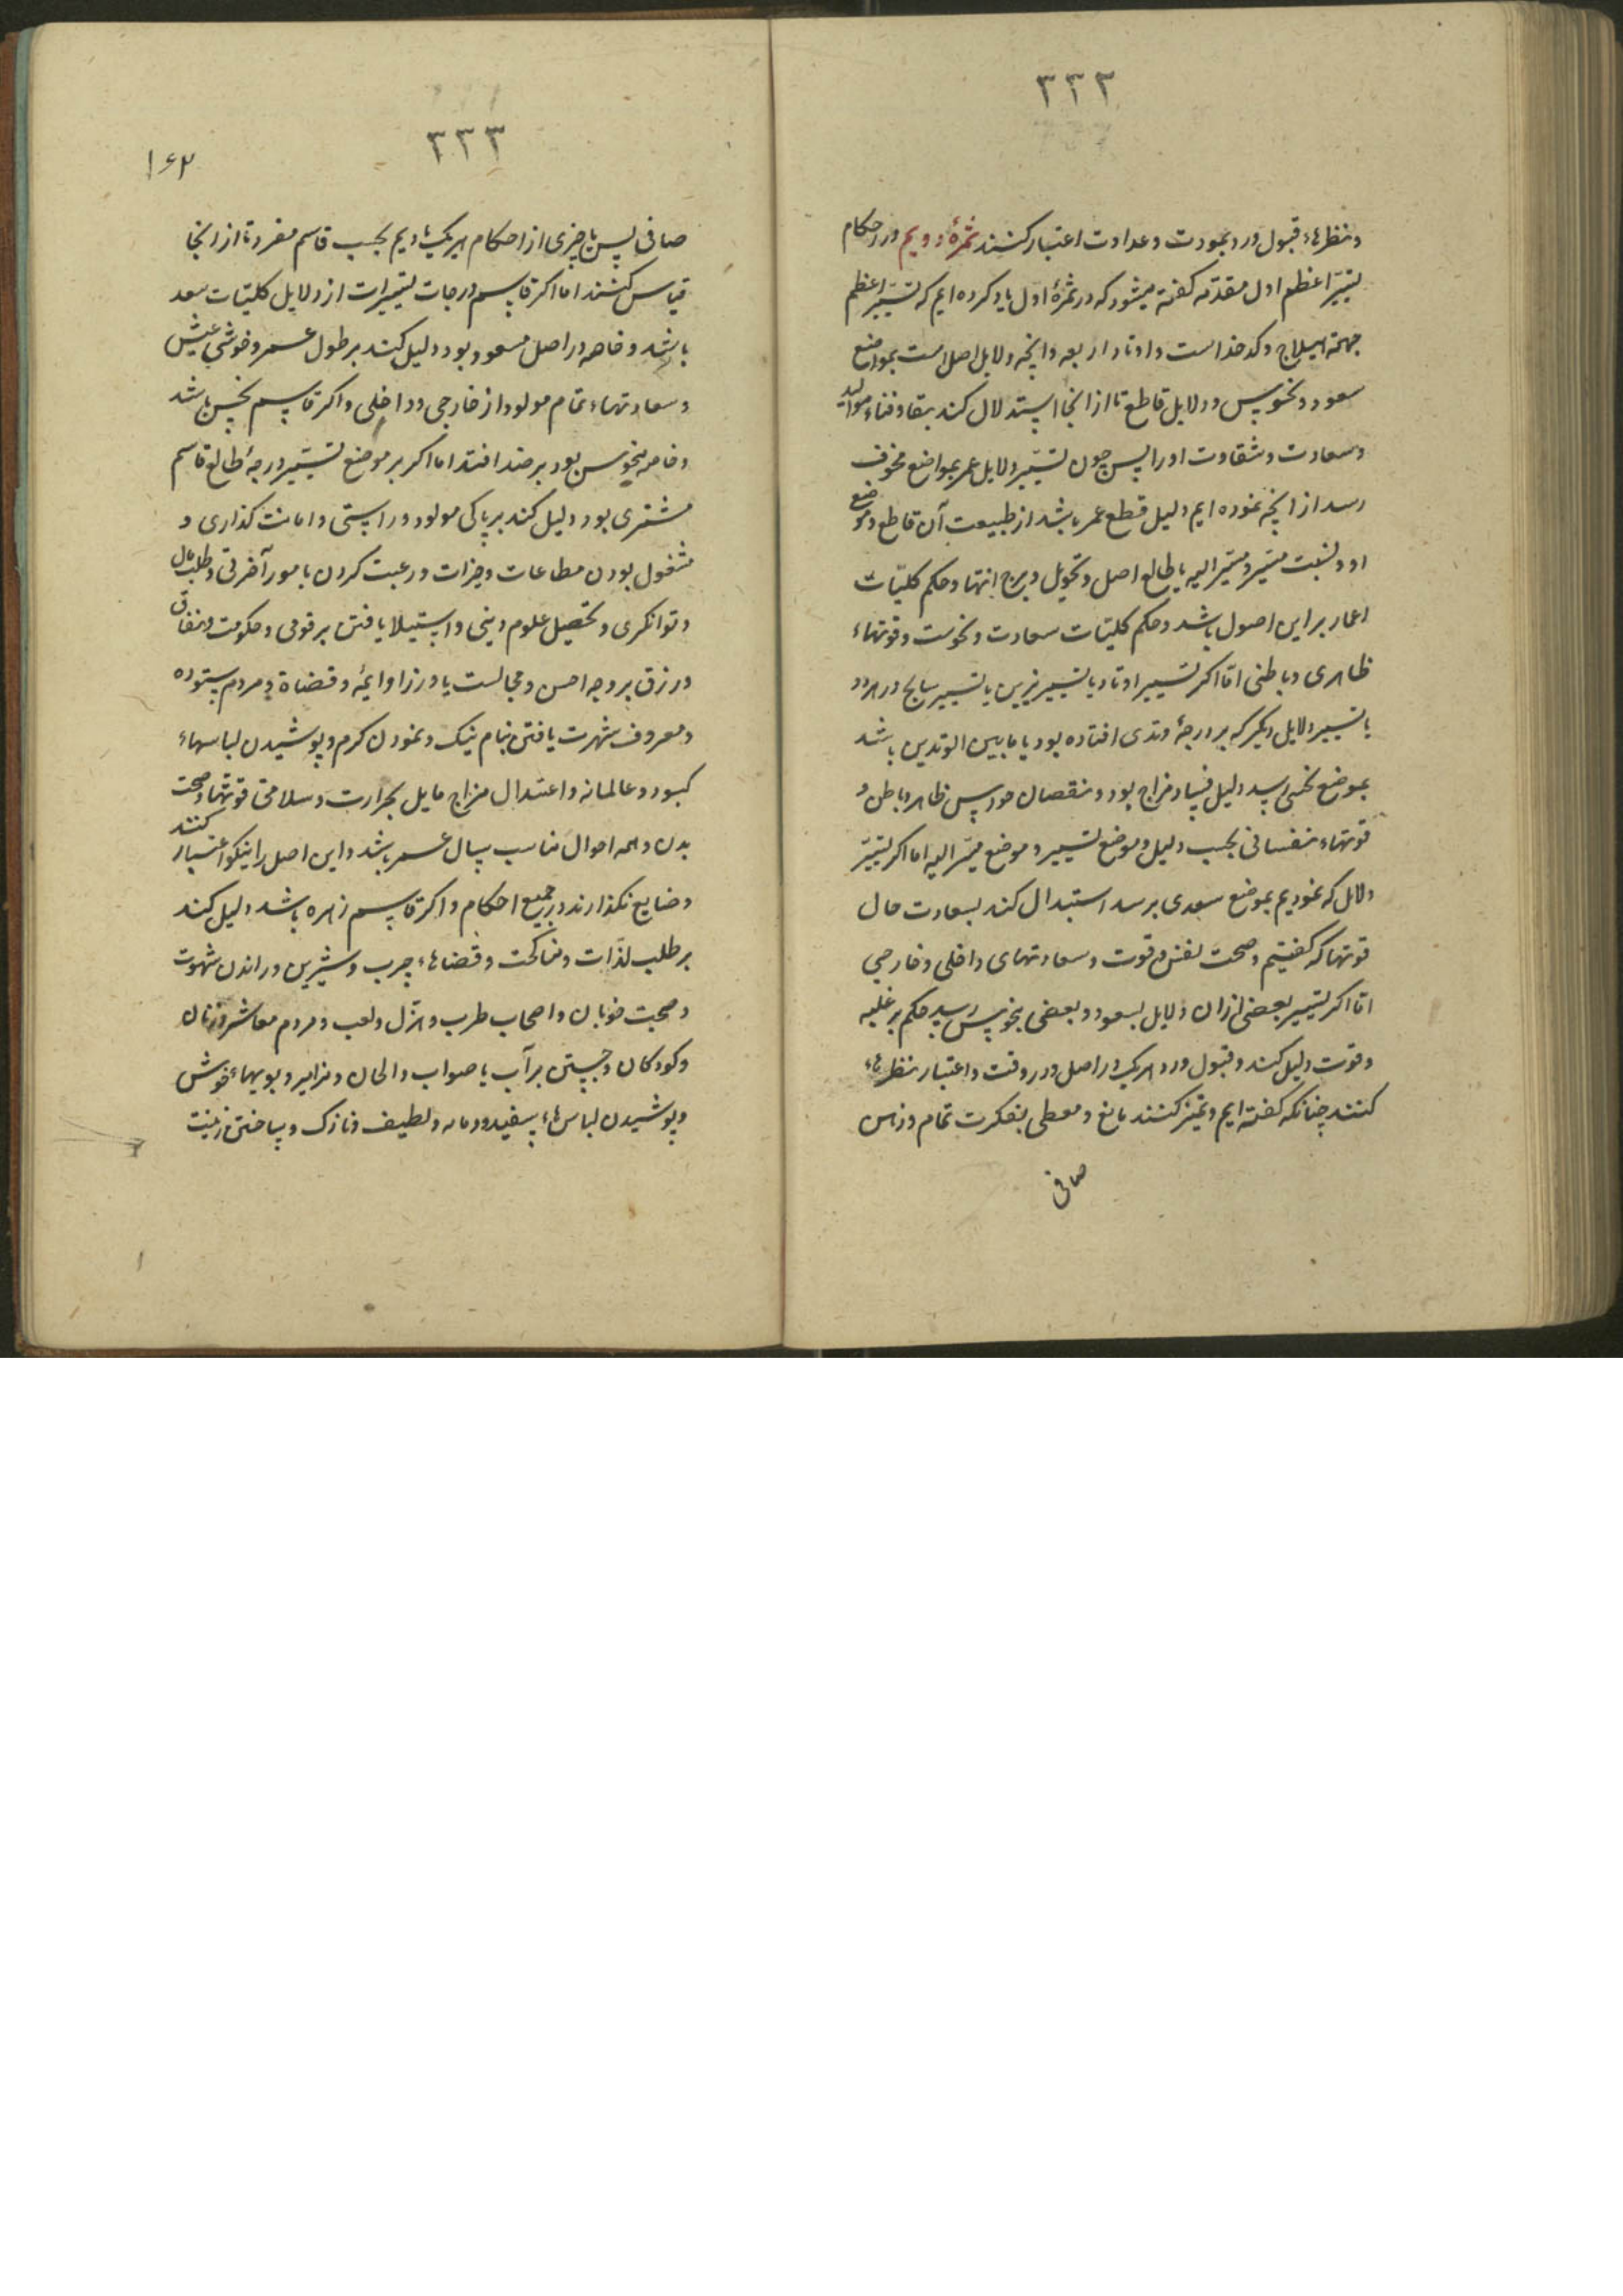 ۳۳۲
و نظرهاء قبول و رد بمودت و عداوت اعتبار کنند ثمرهٔ دویم در احکام
تسییر اعظم اول مقدمه گفته میشود که در ثمرهٔ اول یاد کرده ایم که تسییر اعظم
جهة هیلاج و کدخداست و اوتاد اربعه و انچه دلایل اصل است بمواضع
سعود و نحوس و دلایل قاطع تا از انجا استدلال کند ببقا و فناء موالید
و سعادت و شقاوت او را پس چون تسییر دلایل عمر بمواضع مخوف
رسد از انچه نموده ایم دلیل قطع عمر باشد از طبیعت آن قاطع و موضع
او و نسبت مسیر و مسیر الیه با طالع اصل و تحویل و برج انتها و حکم کلیّات
اعمار بر این اصول باشد و حکم کلیات سعادت و نحوست و قوتهاء
ظاهری و باطنی امّا اکر تسییر اوتاد یا تسییر نیرین یا تسییر سایح در هر دو
یا تسییر دلایل دیکر که بر درجهٔ وتدی افتاده بود یا مابین الوتدین باشد
بموضع نحسی رسد دلیل فساد مزاج بود و نقصان حواس ظاهر و باطن و
قوتهاء نفسانی بحسب دلیل و موضع تسییر و موضع مسیر الیه اما اکر تسییر
دلایل که نمودیم بموضع سعدی برسد استبدال کند بسعادت حال
قوتها که کفتیم و صحت نفس و قوت و سعادتهای داخلی و خارجی
امّا اکر تسییر بعضی از ان دلایل بسعود و بعضی بنحوس رسد حکم بر غلبه
و قوت دلیل کند و قبول و رد هر یک در اصل و در وقت و اعتبار نظرهاء
کنند چنانکه کفته ایم و تمیز کنند مانع و معطی بفکرت تمام و ذهن
صافی
۳۳۳
۱۶۲
صافی پس ما چیزی از احکام هر یک یاد دیم بحسب قاسم مفرد تا از انجا
قیاس کنند اما اکر قاسم درجات تسییرات از دلایل کلیات سعد
باشد و خاصه در اصل مسعود بود دلیل کند بر طول عمر و خوشی عیش
و سعادتهاء تمام مولود از خارجی و داخلی و اکر قاسم نحس باشد
و خاصه منحوس بود بر ضد افتد اما اکر بر موضع تسییر درجهٔ طالع قاسم
مشتری بود دلیل کند بر پاکی مولود و راستی و امانت کذاری و
مشغول بودن بطاعات و خیرات و رغبت کردن بامور آخرتی و طلب مال
و توانکری و تحصیل علوم دینی و استیلا یافتن بر قومی و حکومت و نفاق
و رزق بر وجه احسن و مجالست با وزرا و ایمهٔ و قضاة و مردم ستوده
و معروف شهرت یافتن بنام نیک و نمودن کرم و پوشیدن لباسهاء
کبود و عالمانه و اعتدال مزاج مایل بحرارت و سلامتی قوتها و صحت
بدن و همه احوال مناسب سال عمر باشد و این اصل را نیکو اعتبار کنند
و ضایع نکذارند در جمیع احکام و اکر قاسم زهره باشد دلیل کند
بر طلب لذّات و مناکحت و قضاهاء چرب و شیرین و راندن شهوت
و صحبت خوبان و اصحاب طرب و هزل و لعب و مردم معاشر و زنان
و کودکان و جستن بر آب با صواب و الحان و مزامیر و بویهاء خوش
و پوشیدن لباس هاء سفید و لطیف و نازک و ساختن زینت